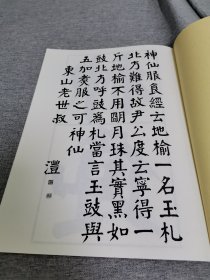 神仙服食經云地榆一名玉札
北方難得故尹公度云寧得一
斤地榆不用明月珠其實黑如
豉北方呼豉為札當言玉豉與
五加煑服之可神仙
東山老世叔
澧